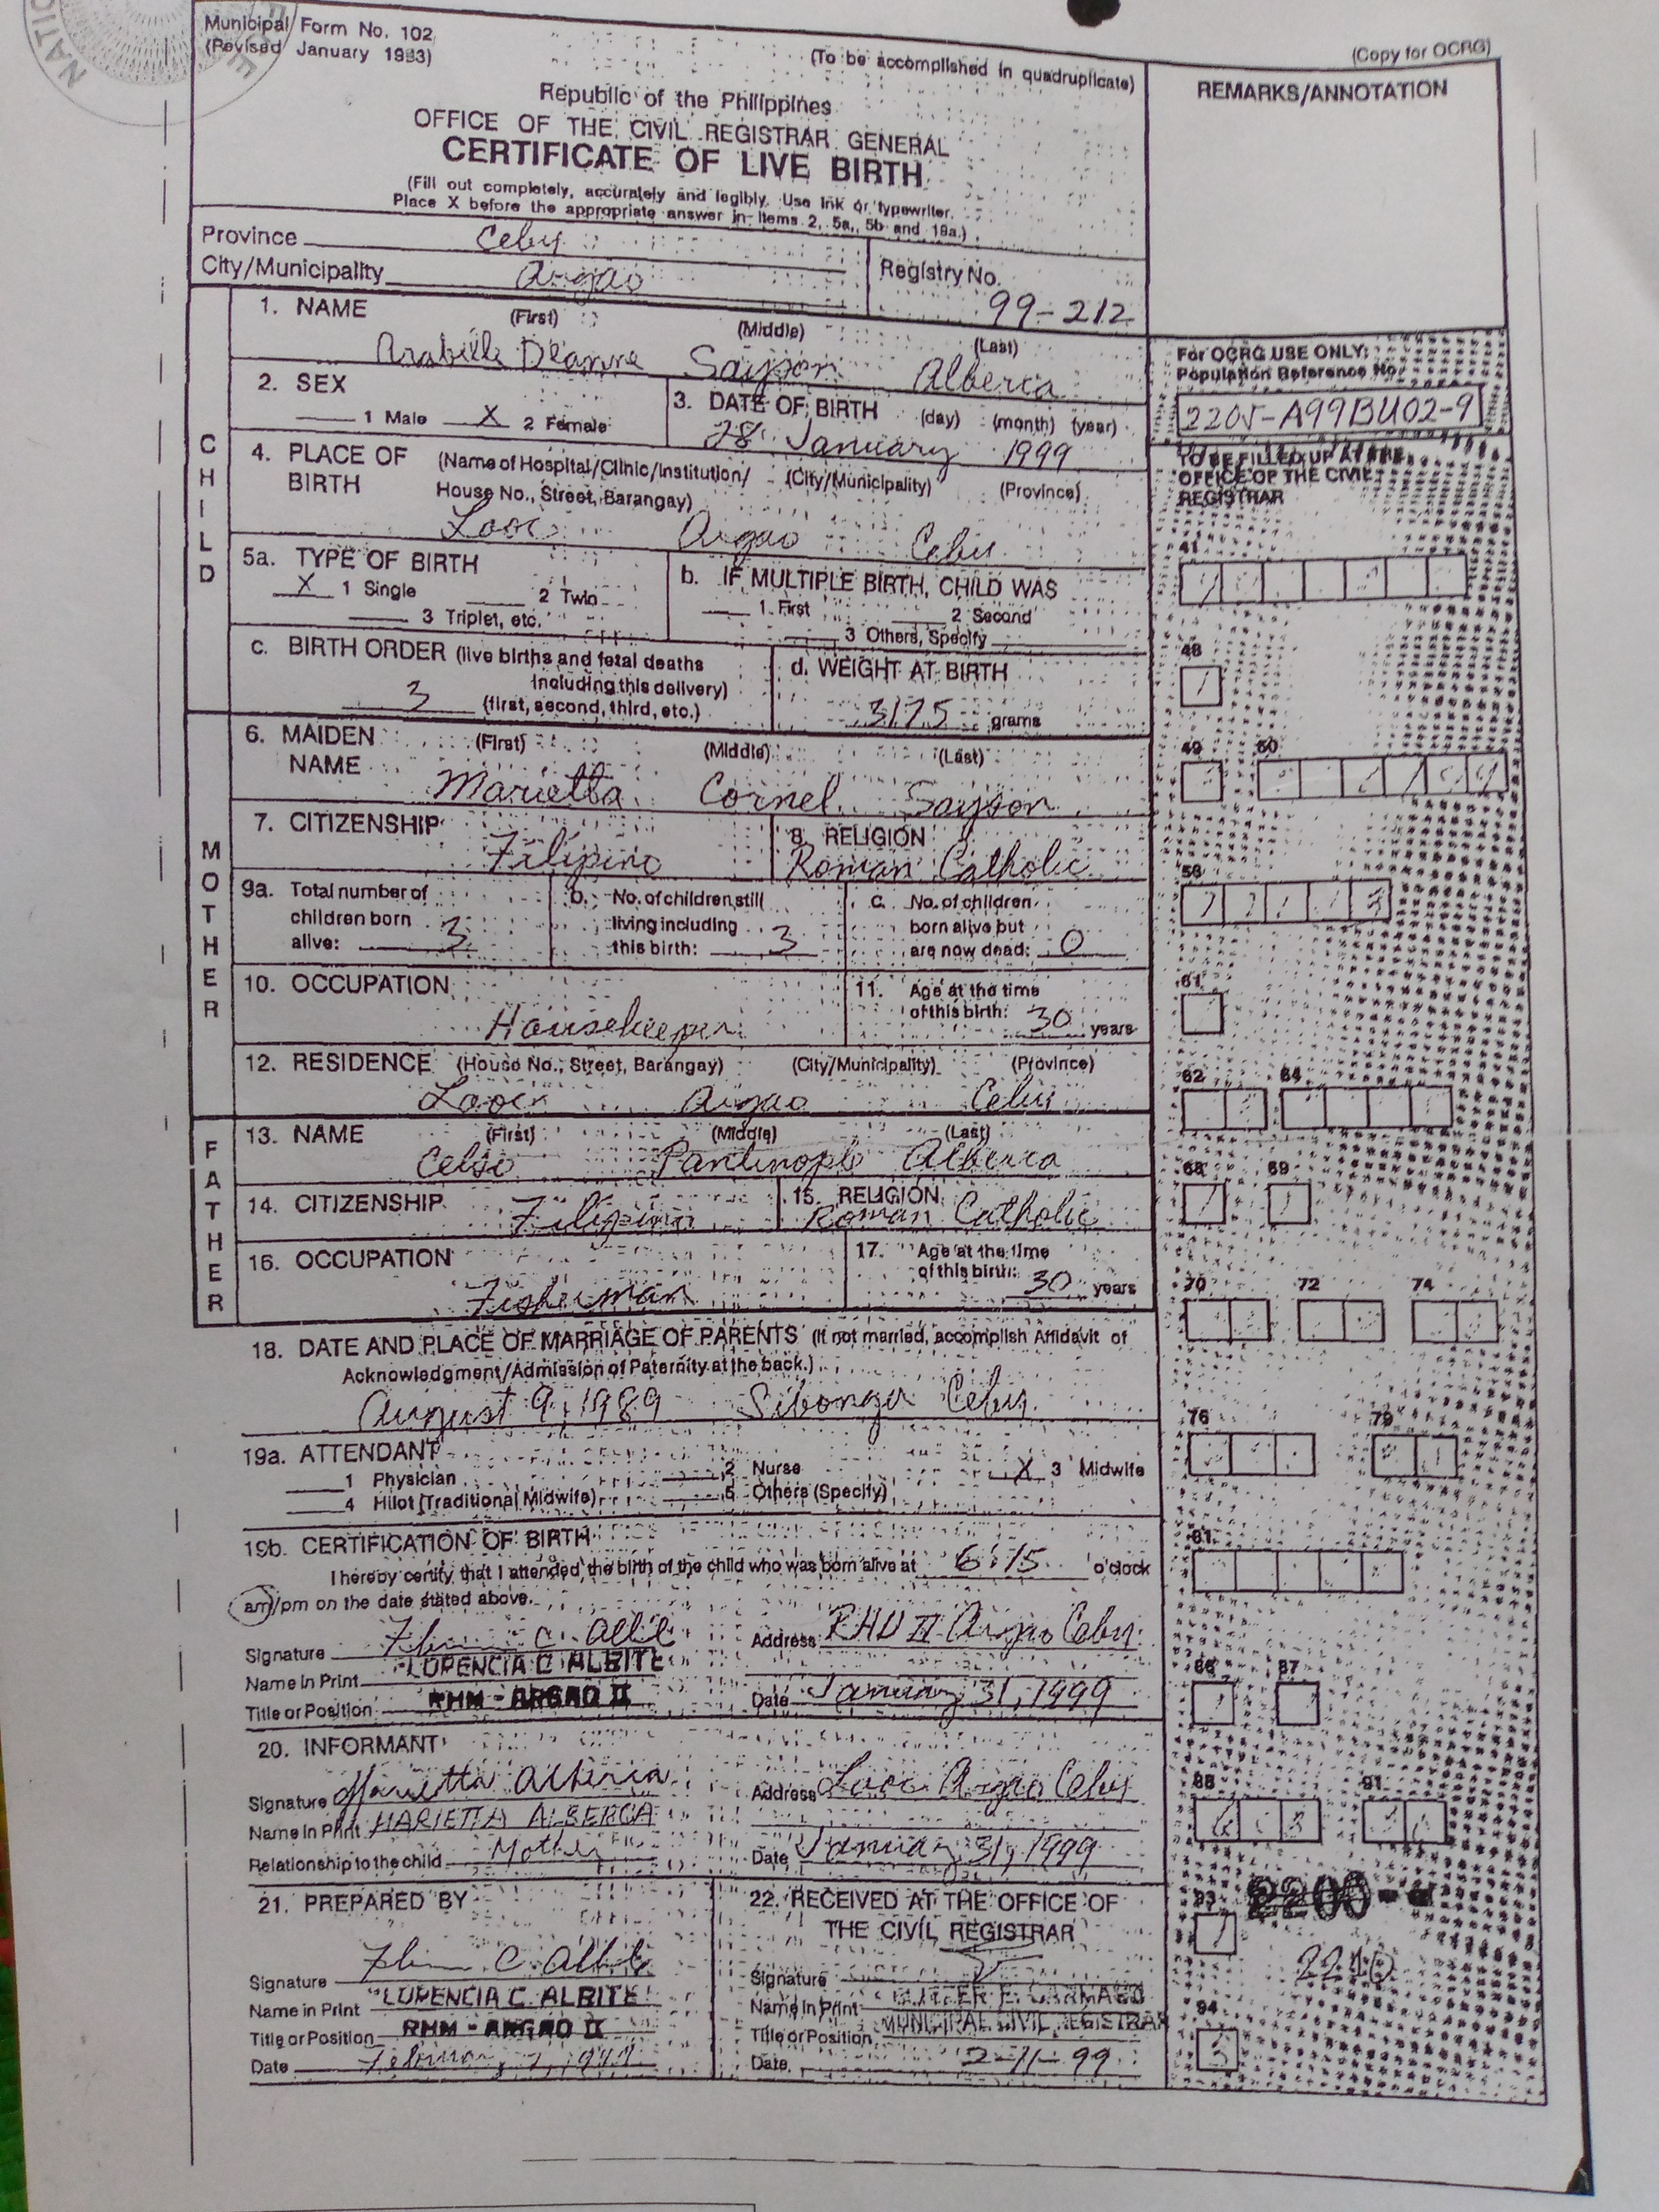 Municipal Form No. 102
(Revised January 1993)
(To be accomplished in quadruplicate)
(Copy for OCRG)
REMARKS/ANNOTATION
Republic of the Philippines
OFFICE OF THE CIVIL REGISTRAR GENERAL
CERTIFICATE OF LIVE BIRTH
(Fill out completely, accurately and legibly. Use ink or typewriter.
Place X before the appropriate answer in Items 2, 5a, 5b and 19a.)
Province Cebu
City/Municipality Argao
Registry No. 99-212
CHILD
1. NAME (First) (Middle) (Last)
Arabelle Deanne Sayson Alberca
For OCRG USE ONLY:
Population Reference No.
2205-A99BU02-9
2. SEX
1 Male X 2 Female
3. DATE OF BIRTH (day) (month) (year)
28 January 1999
TO BE FILLED UP AT THE
OFFICE OF THE CIVIL
REGISTRAR
4. PLACE OF BIRTH (Name of Hospital/Clinic/Institution/ (City/Municipality) (Province)
House No., Street, Barangay)
Looc Argao Cebu
41
5a. TYPE OF BIRTH
X 1 Single 2 Twin
3 Triplet, etc.
b. IF MULTIPLE BIRTH, CHILD WAS
1 First 2 Second
3 Others, Specify
48
c. BIRTH ORDER (live births and fetal deaths
including this delivery)
3 (first, second, third, etc.)
d. WEIGHT AT BIRTH
3175 grams
MOTHER
6. MAIDEN NAME (First) (Middle) (Last)
Marietta Cornel Sayson
49 50
7. CITIZENSHIP Filipino
8. RELIGION
Roman Catholic
56
9a. Total number of
children born
alive: 3
b. No. of children still
living including
this birth: 3
c. No. of children
born alive but
are now dead: 0
10. OCCUPATION
Housekeeper
11. Age at the time
of this birth: 30 years
61
12. RESIDENCE (House No., Street, Barangay) (City/Municipality) (Province)
Looc Argao Cebu
62 64
FATHER
13. NAME (First) (Middle) (Last)
Celso Alberca
68 69
14. CITIZENSHIP Filipino
15. RELIGION
Roman Catholic
16. OCCUPATION
Fisherman
17. Age at the time
of this birth: 30 years
70 72 74
18. DATE AND PLACE OF MARRIAGE OF PARENTS (If not married, accomplish Affidavit of
Acknowledgment/Admission of Paternity at the back.)
August 9, 1989 Sibonga Cebu
76 79
19a. ATTENDANT
1 Physician 2 Nurse X 3 Midwife
4 Hilot (Traditional Midwife) 5 Others (Specify)
19b. CERTIFICATION OF BIRTH
I hereby certify that I attended the birth of the child who was born alive at 6:15 o'clock
am/pm on the date stated above.
81
Signature
Address RHU II Argao Cebu
Name in Print LORENCIA C ALBITE
Title or Position RHM - ARGAO II
Date January 31, 1999
86 87
20. INFORMANT
Signature Marietta Alberca
Address Looc Argao Cebu
Name in Print MARIETTA ALBERCA
Relationship to the child Mother
Date January 31, 1999
88 91
21. PREPARED BY
22. RECEIVED AT THE OFFICE OF
THE CIVIL REGISTRAR
93
Signature
Signature
Name in Print LORENCIA C. ALBITE
Name in Print
Title or Position RHM - ARGAO II
Title or Position MUNICIPAL CIVIL REGISTRAR
94
Date
Date 2-11-99